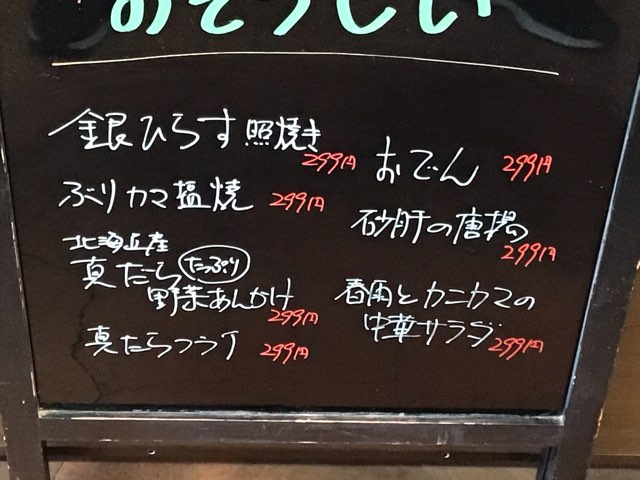 おそうじい
銀ひらす照焼き
299円
ぶりカマ塩焼 299円
北海道産
真たら たっぷり
野菜あんかけ
299円
真たらフライ 299円
おでん 299円
砂肝の唐揚
299円
春雨とカニカマの
中華サラダ 299円